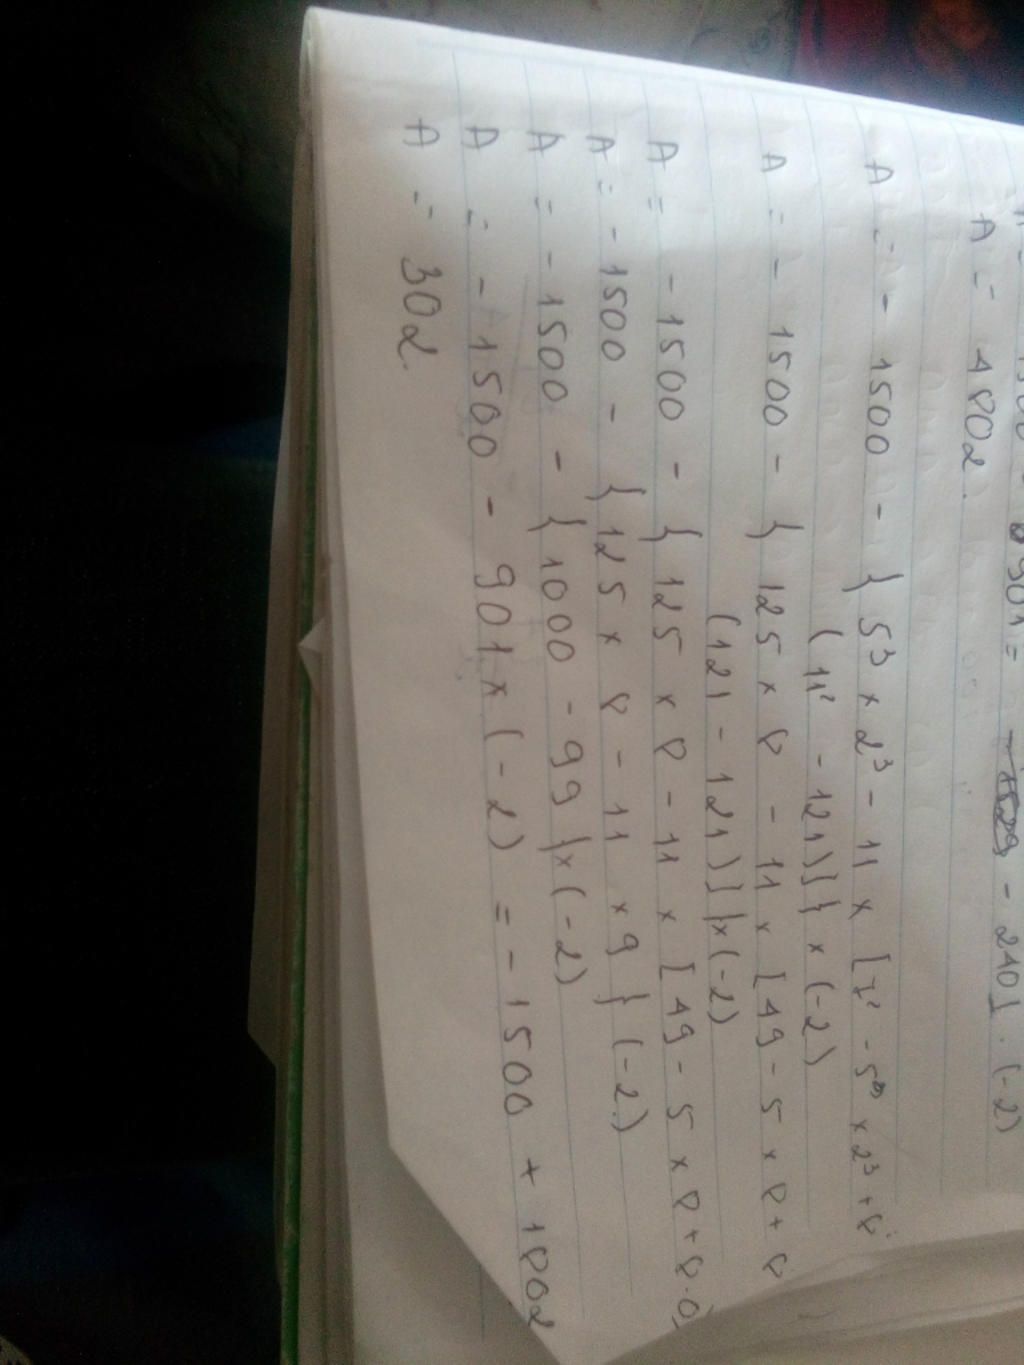 - 240] . (-2)
A = 4802.
A = - 1500 - { 5³ x 2³ - 11 x [7² - 5 x 2³ + 8
(11² - 121)] } x (-2)
A = - 1500 - { 125 x 8 - 11 x [49 - 5 x 8 + 8
(121 - 121)] } x (-2)
A = - 1500 - { 125 x 8 - 11 x [49 - 5 x 8 + 8.0]
A = - 1500 - { 125 x 8 - 11 x 9 } (-2)
A = - 1500 - { 1000 - 99 } x (-2)
A = - 1500 - 901 x (-2) = - 1500 + 1802
A = 302.